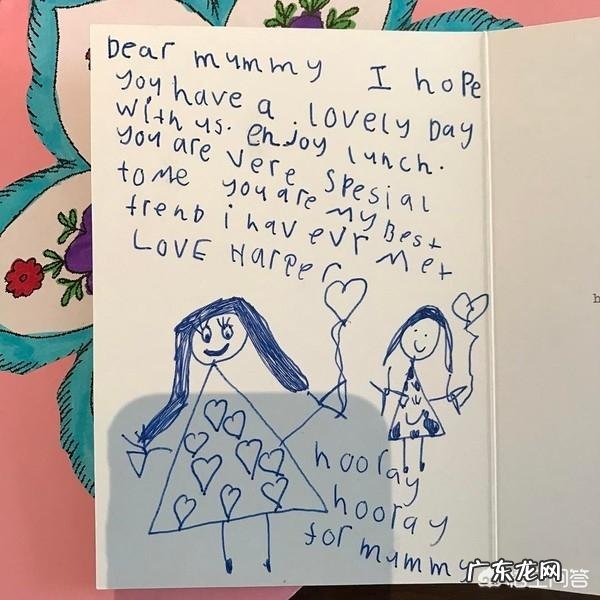 Dear mummy I hope
you have a lovely Day
with us. enjoy lunch.
you are vere spesial
to me you are my Best
frend i hav evr met
LOVE HARPER
hooray
hooray
for mummy
h
广东龙网